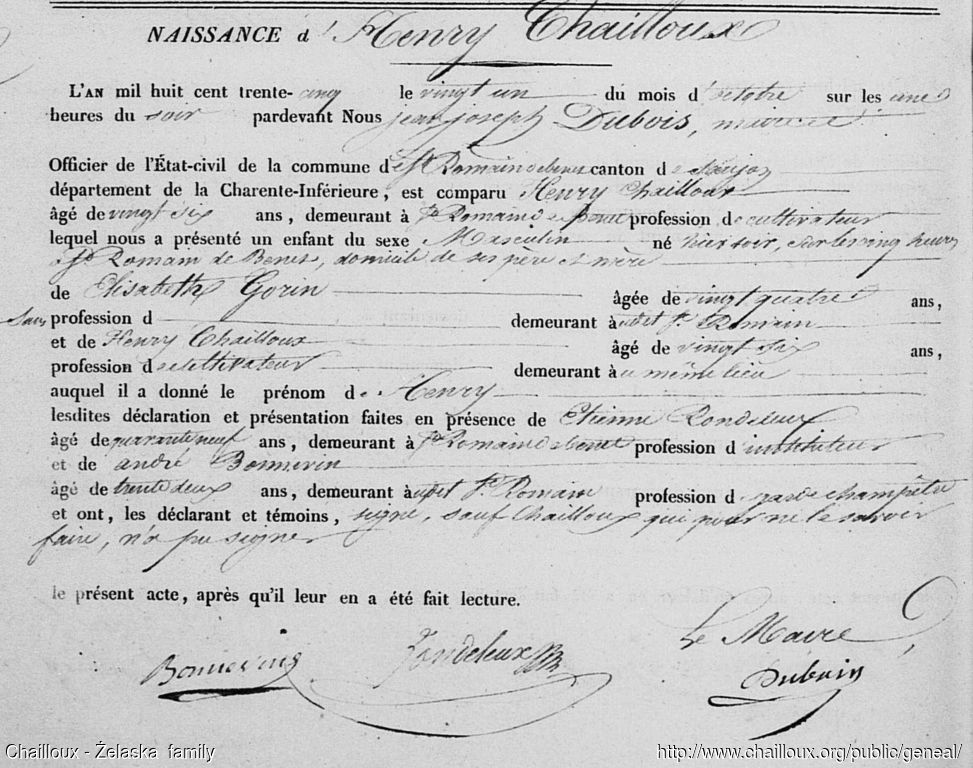 NAISSANCE d' Henry Chailloux
L'AN mil huit cent trente-cinq le vingt un du mois d'octobre sur les une
heures du soir pardevant Nous jean joseph Dubois, maire
Officier de l'État-civil de la commune de St Romain de benet canton de Saujon
département de la Charente-Inférieure, est comparu Henry Chailloux
âgé de vingt six ans, demeurant à St Romain de benet profession de cultivateur
lequel nous a présenté un enfant du sexe Masculin né hier soir, sur les cinq heures
a St Romain de Benet, domicile de ses père et mère
de Elisabeth Gorin âgée de vingt quatre ans,
Sans profession d demeurant à udit St Romain
et de Henry Chailloux âgé de vingt six ans,
profession de cultivateur demeurant à u même lieu
auquel il a donné le prénom de Henry
lesdites déclaration et présentation faites en présence de Etienne Rondeleux
âgé de quarante neuf ans, demeurant à St Romain de benet profession d'instituteur
et de andré Bonnerin
âgé de trente deux ans, demeurant à udit St Romain profession de garde champêtre
et ont, les déclarant et témoins, signé, sauf Chailloux qui pour ne le savoir
faire, n'a pu signer
le présent acte, après qu'il leur en a été fait lecture.
Le Maire
Bonnerin Rondeleux Dubois
Chailloux - Żelaska family http://www.chailloux.org/public/geneal/